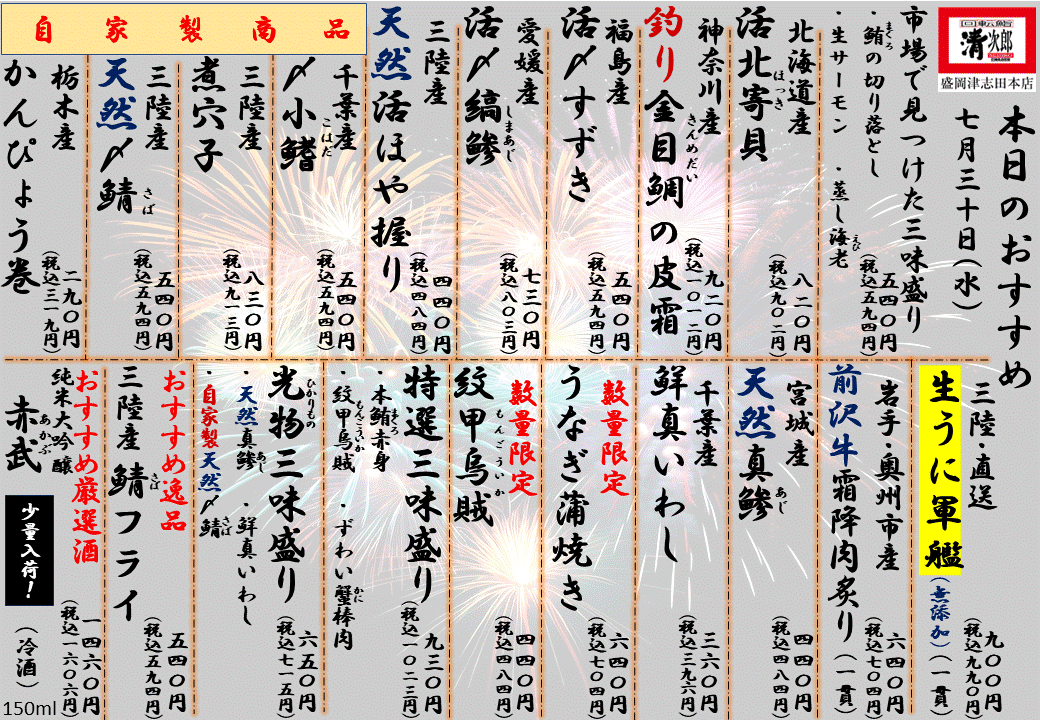 回転鮨
清次郎
盛岡津志田本店
本日のおすすめ
七月三十日(水)
市場で見つけた三味盛り
・鮪の切り落とし
まぐろ
・生サーモン
・蒸し海老
えび
五四〇円
(税込五九四円)
北海道産
活北寄貝
ほっき
八二〇円
(税込九〇二円)
神奈川産
釣り金目鯛の皮霜
きんめだい
九二〇円
(税込一〇一二円)
福島産
活〆すずき
五四〇円
(税込五九四円)
愛媛産
活〆縞鯵
しまあじ
七三〇円
(税込八〇三円)
三陸産
天然活ほや握り
四四〇円
(税込四八四円)
自家製商品
千葉産
〆小鰭
こはだ
五四〇円
(税込五九四円)
三陸産
煮穴子
八三〇円
(税込九一三円)
三陸産
天然〆鯖
さば
五四〇円
(税込五九四円)
栃木産
かんぴょう巻
二九〇円
(税込三一九円)
三陸・直送
生うに軍艦
(無添加)(一貫)
九〇〇円
(税込九九〇円)
岩手・奥州市産
前沢牛霜降肉炙り(一貫)
六四〇円
(税込七〇四円)
宮城産
天然真鯵
あじ
四四〇円
(税込四八四円)
千葉産
鮮真いわし
三六〇円
(税込三九六円)
数量限定
うなぎ蒲焼き
六四〇円
(税込七〇四円)
数量限定
紋甲烏賊
もんごういか
四四〇円
(税込四八四円)
特選三味盛り
・本鮪赤身
まぐろ
・ずわい蟹棒肉
かに
・紋甲烏賊
もんごういか
九三〇円
(税込一〇二三円)
光物三味盛り
ひかりもの
・天然真鯵
あじ
・鮮真いわし
・自家製天然〆鯖
さば
六五〇円
(税込七一五円)
おすすめ逸品
三陸産 鯖フライ
さば
五四〇円
(税込五九四円)
おすすめ厳選酒
純米大吟醸
赤武
あかぶ
少量入荷!
(冷酒)
一四六〇円
(税込一六〇六円)
150ml